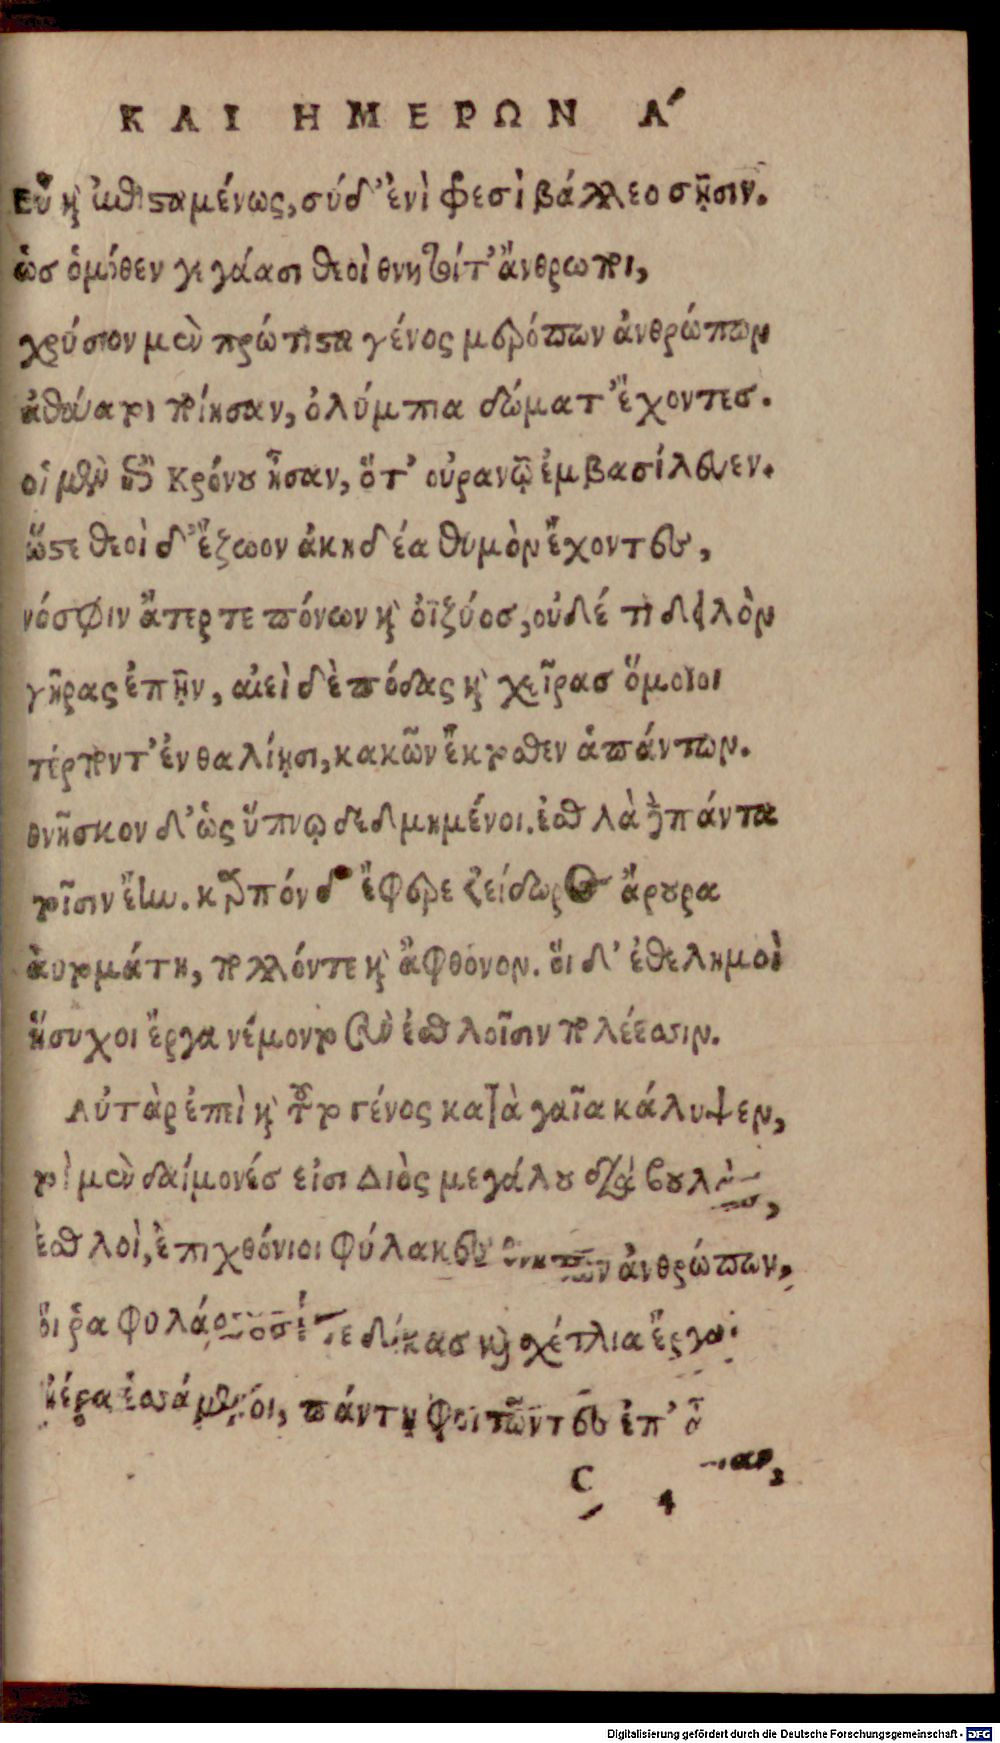 ΚΑΙ ΗΜΕΡΩΝ Α΄
Εὖ καὶ ἐπισταμένως, σύ δ’ ἐνὶ φρεσὶ βάλλεο σῇσιν.
ὡσ ὁμόθεν γεγάασι θεοὶ θνητοίτ’ ἄνθρωποι,
χρύσιον μὲν πρώτιστα γένος μερόπων ἀνθρώπων
ἀθάνατοι ποίησαν, ὀλύμπια δώματ’ ἔχοντεσ.
οἱ μὲν ἐπὶ Κρόνου ἦσαν, ὅτ’ οὐρανῷ ἐμβασίλευεν.
ὥστε θεοὶ δ’ ἔζωον ἀκηδέα θυμὸν ἔχοντες,
νόσφιν ἄτερτε πόνων καὶ ὀϊζύοσ, οὐδέ τι δειλὸν
γῆρας ἐπῆν, αἰεὶ δὲ πόδας καὶ χεῖρασ ὅμοιοι
τέρποντ’ ἐν θαλίῃσι, κακῶν ἔκτοσθεν ἁπάντων.
θνῆσκον δ’ ὡς ὕπνῳ δεδμημένοι. ἐσθλὰ δὲ πάντα
τοῖσιν ἔην. καρπόν δ’ ἔφερε ζείδωρος ἄρουρα
ἀυτομάτη, πολλόντε καὶ ἄφθονον. ὅι δ’ ἐθελημοὶ
ἥσυχοι ἔργα νέμοντο σὺν ἐσθλοῖσιν πολέεσσιν.
Αὐτὰρ ἐπεὶ καὶ τοῦτο γένος κατὰ γαῖα κάλυψεν,
τοὶ μὲν δαίμονέσ εἰσι Διὸς μεγάλου διὰ βουλὰς,
ἐσθλοὶ, ἐπιχθόνιοι φύλακες ἀνθρώπων,
ὅι ῥα φυλάσ τε δίκασ καὶ σχέτλια ἔργα.
ἠέρα ἑσσάμενοι, πάντῃ φοιτῶντες ἐπ’
C 4
Digitalisierung gefördert durch die Deutsche Forschungsgemeinschaft - DFG